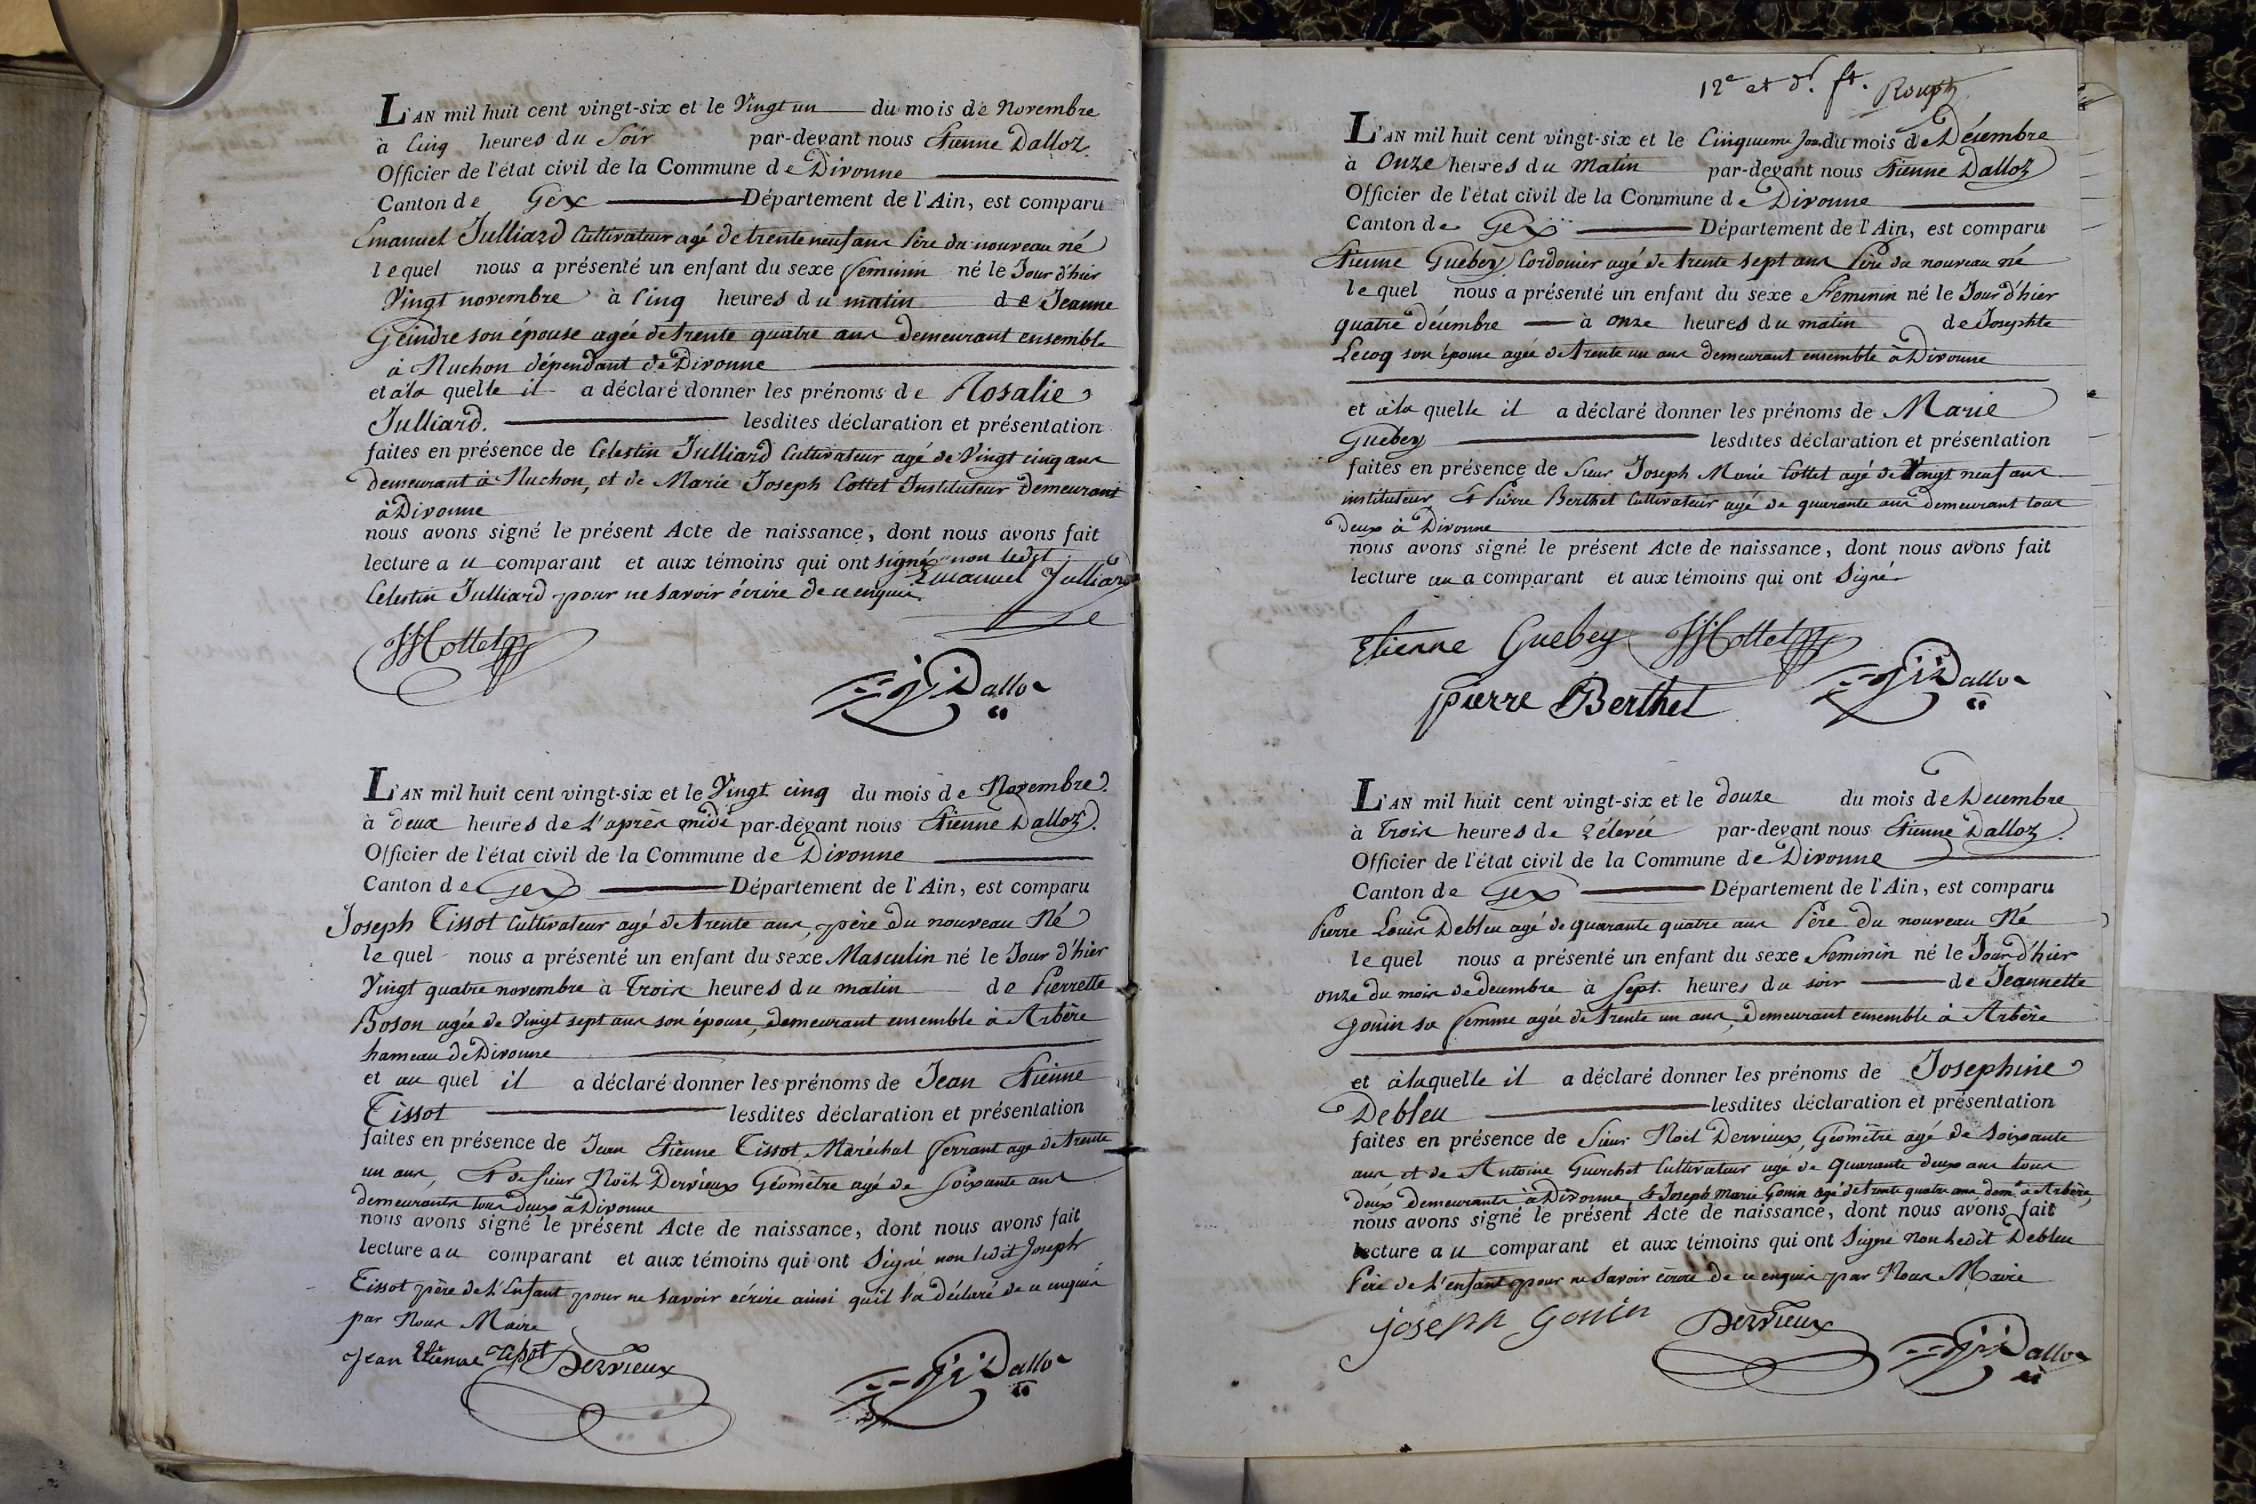 L'AN mil huit cent vingt-six et le Vingt un du mois de Novembre
à Cinq heures du Soir par-devant nous Etienne Dalloz
Officier de l'état civil de la Commune de Divonne
Canton de Gex Département de l'Ain, est comparu
Emanuel Julliard Cultivateur agé de trente neuf ans Père du nouveau né
lequel nous a présenté un enfant du sexe feminin né le Jour d'hier
Vingt novembre à Cinq heures du matin de Jeanne
Geindre son épouse agée de trente quatre ans demeurant ensemble
à Ruchon dépendant de Divonne
et à la quelle il a déclaré donner les prénoms de Rosalie
Julliard. lesdites déclaration et présentation
faites en présence de Celestin Julliard Cultivateur agé de Vingt cinq ans
demeurant à Ruchon, et de Marie Joseph Cottet Instituteur demeurant
à Divonne
nous avons signé le présent Acte de naissance, dont nous avons fait
lecture au comparant et aux témoins qui ont signé non ledit
Celestin Julliard pour ne savoir écrire de ce enquis
Emanuel Julliard
JMCottet
Dalloz
L'AN mil huit cent vingt-six et le Vingt cinq du mois de Novembre
à deux heures de L'après midi par-devant nous Etienne Dalloz.
Officier de l'état civil de la Commune de Divonne
Canton de Gex Département de l'Ain, est comparu
Joseph Tissot Cultivateur agé de trente ans, père du nouveau Né
lequel nous a présenté un enfant du sexe Masculin né le Jour d'hier
Vingt quatre novembre à Trois heures du matin de Pierrette
Boson agée de Vingt sept ans son épouse, demeurant ensemble à Arbère
hameau de Divonne
et au quel il a déclaré donner les prénoms de Jean Etienne
Tissot lesdites déclaration et présentation
faites en présence de Jean Etienne Tissot Maréchal ferrant agé de trente
un ans, Et de Sieur Noël Dervieux Géomètre agé de Soixante ans
demeurants tous deux à Divonne
nous avons signé le présent Acte de naissance, dont nous avons fait
lecture au comparant et aux témoins qui ont Signé non ledit Joseph
Tissot père de L'Enfant pour ne savoir écrire ainsi qu'il l'a déclaré de ce enquis
par Nous Maire
Jean Etienne Tissot Dervieux Dalloz
12e et dr. ft. Rouph
L'AN mil huit cent vingt-six et le Cinquieme Jour du mois de Décembre
à Onze heures du Matin par-devant nous Etienne Dalloz
Officier de l'état civil de la Commune de Divonne
Canton de Gex Département de l'Ain, est comparu
Etienne Guebey Cordonier agé de trente sept ans Père du nouveau né
lequel nous a présenté un enfant du sexe Feminin né le Jour d'hier
quatre décembre à onze heures du matin de Josephte
Lecoq son épouse agée de trente un ans demeurant ensemble à Divonne
et à la quelle il a déclaré donner les prénoms de Marie
Guebey lesdites déclaration et présentation
faites en présence de Sieur Joseph Marie Cottet agé de Vingt neuf ans
instituteur Et Pierre Berthet Cultivateur agé de quarante ans demeurant tous
deux à Divonne
nous avons signé le présent Acte de naissance, dont nous avons fait
lecture au comparant et aux témoins qui ont Signé
Etienne Guebey JMCottet
Pierre Berthet Dalloz
L'AN mil huit cent vingt-six et le douze du mois de Decembre
à Trois heures de relevée par-devant nous Etienne Dalloz.
Officier de l'état civil de la Commune de Divonne
Canton de Gex Département de l'Ain, est comparu
Pierre Louis Debleu agé de quarante quatre ans Père du nouveau Né
lequel nous a présenté un enfant du sexe Feminin né le Jour d'hier
onze du mois de decembre à Sept heures du soir de Jeannette
Gonin sa femme agée de trente un ans, demeurant ensemble à Arbère
et à laquelle il a déclaré donner les prénoms de Josephine
Debleu lesdites déclaration et présentation
faites en présence de Sieur Noël Dervieux, Géomètre agé de Soixante
ans et de Antoine Guichet Cultivateur agé de Quarante deux ans tous
deux demeurants à Divonne, Et Joseph Marie Gonin agé de trente quatre ans dem.t à Arbère,
nous avons signé le présent Acte de naissance, dont nous avons fait
lecture au comparant et aux témoins qui ont Signé Non ledit Debleu
Père de L'enfant pour ne savoir écrire de ce enquis par Nous Maire
joseph Gonin Dervieux Dalloz